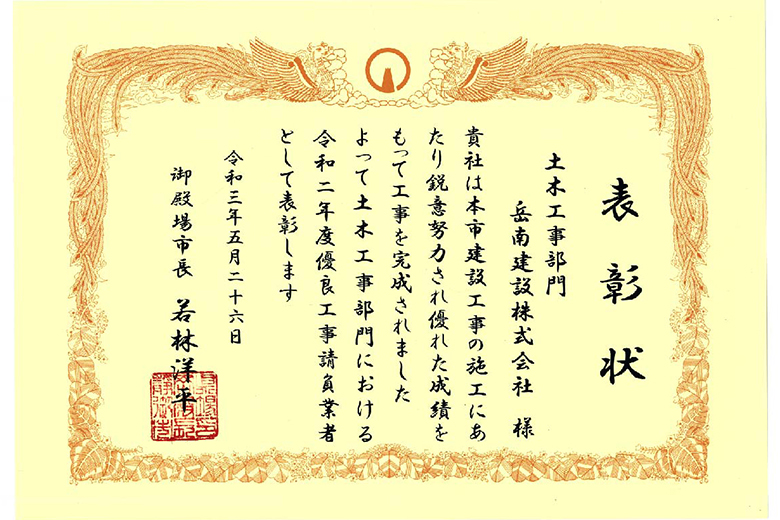 表彰状
土木工事部門
岳南建設株式会社 様
貴社は本市建設工事の施工にあ
たり鋭意努力され優れた成績を
もって工事を完成されました
よって土木工事部門における
令和二年度優良工事請負業者
として表彰します
令和三年五月二十六日
御殿場市長 若林洋平